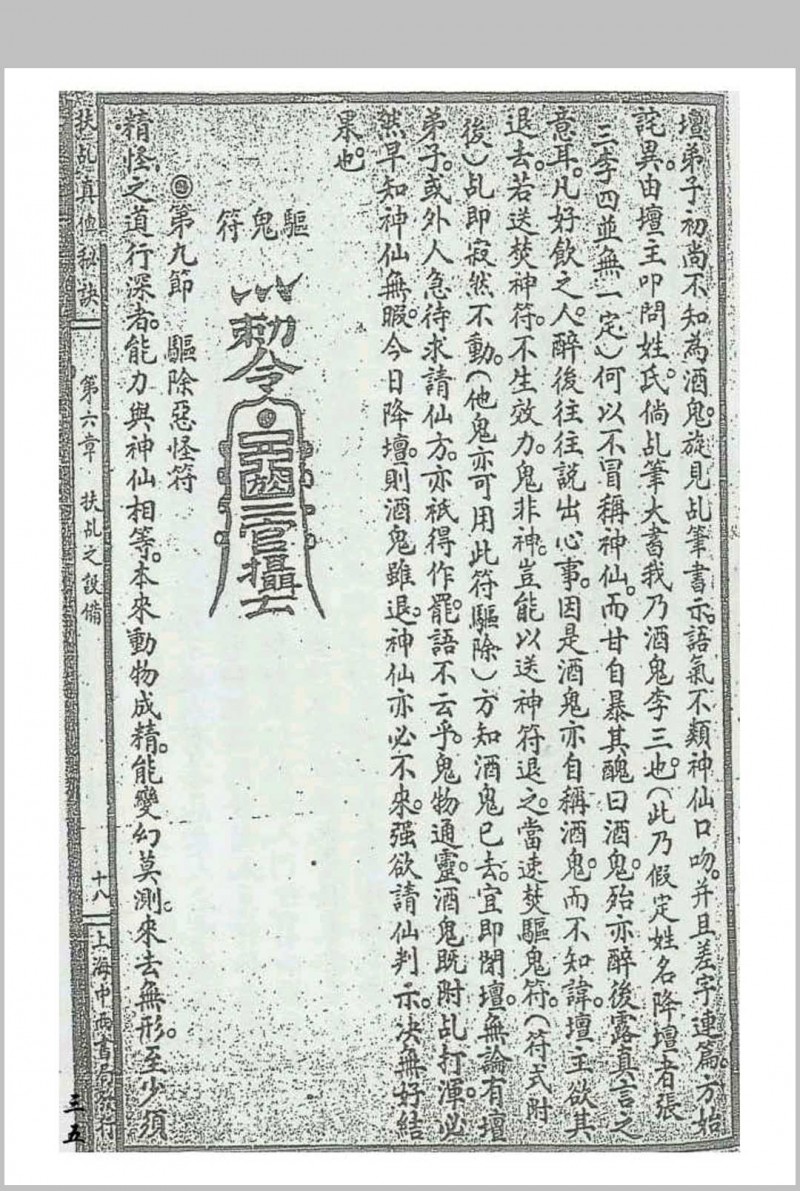 壇弟子初尚不知為酒鬼。旋見乩筆書示。語氣不類神仙口吻。并且差字連篇。方始
詫異。由壇主叩問姓氏。倘乩筆大書我乃酒鬼李三也。(此乃假定姓名降壇者張
三李四並無一定)何以不冒稱神仙。而甘自暴其醜曰酒鬼。殆亦醉後露真言之
意耳。凡好飲之人。醉後往往說出心事。因是酒鬼亦自稱酒鬼。而不知諱。壇主欲其
退去。若送焚神符。不生效力。鬼非神。豈能以送神符退之。當速焚驅鬼符。(符式附
後)乩即寂然不動。(他鬼亦可用此符驅除)方知酒鬼已去。宜即閉壇。無論有壇
弟子。或外人急待求請仙方。亦祇得作罷。語不云乎。鬼物通靈。酒鬼既附乩打渾。必
然早知神仙無暇。今日降壇。則酒鬼雖退。神仙亦必不來。强欲請仙判示。决無好結
果也。
驅鬼符
勅令
三官攝去
第九節 驅除惡怪符
精怪之道行深者。能力與神仙相等。本來動物成精。能變幻莫測。來去無形。至少須
扶乩真仙秘訣
第六章 扶乩之設備
十八
上海中西書局發行
三五